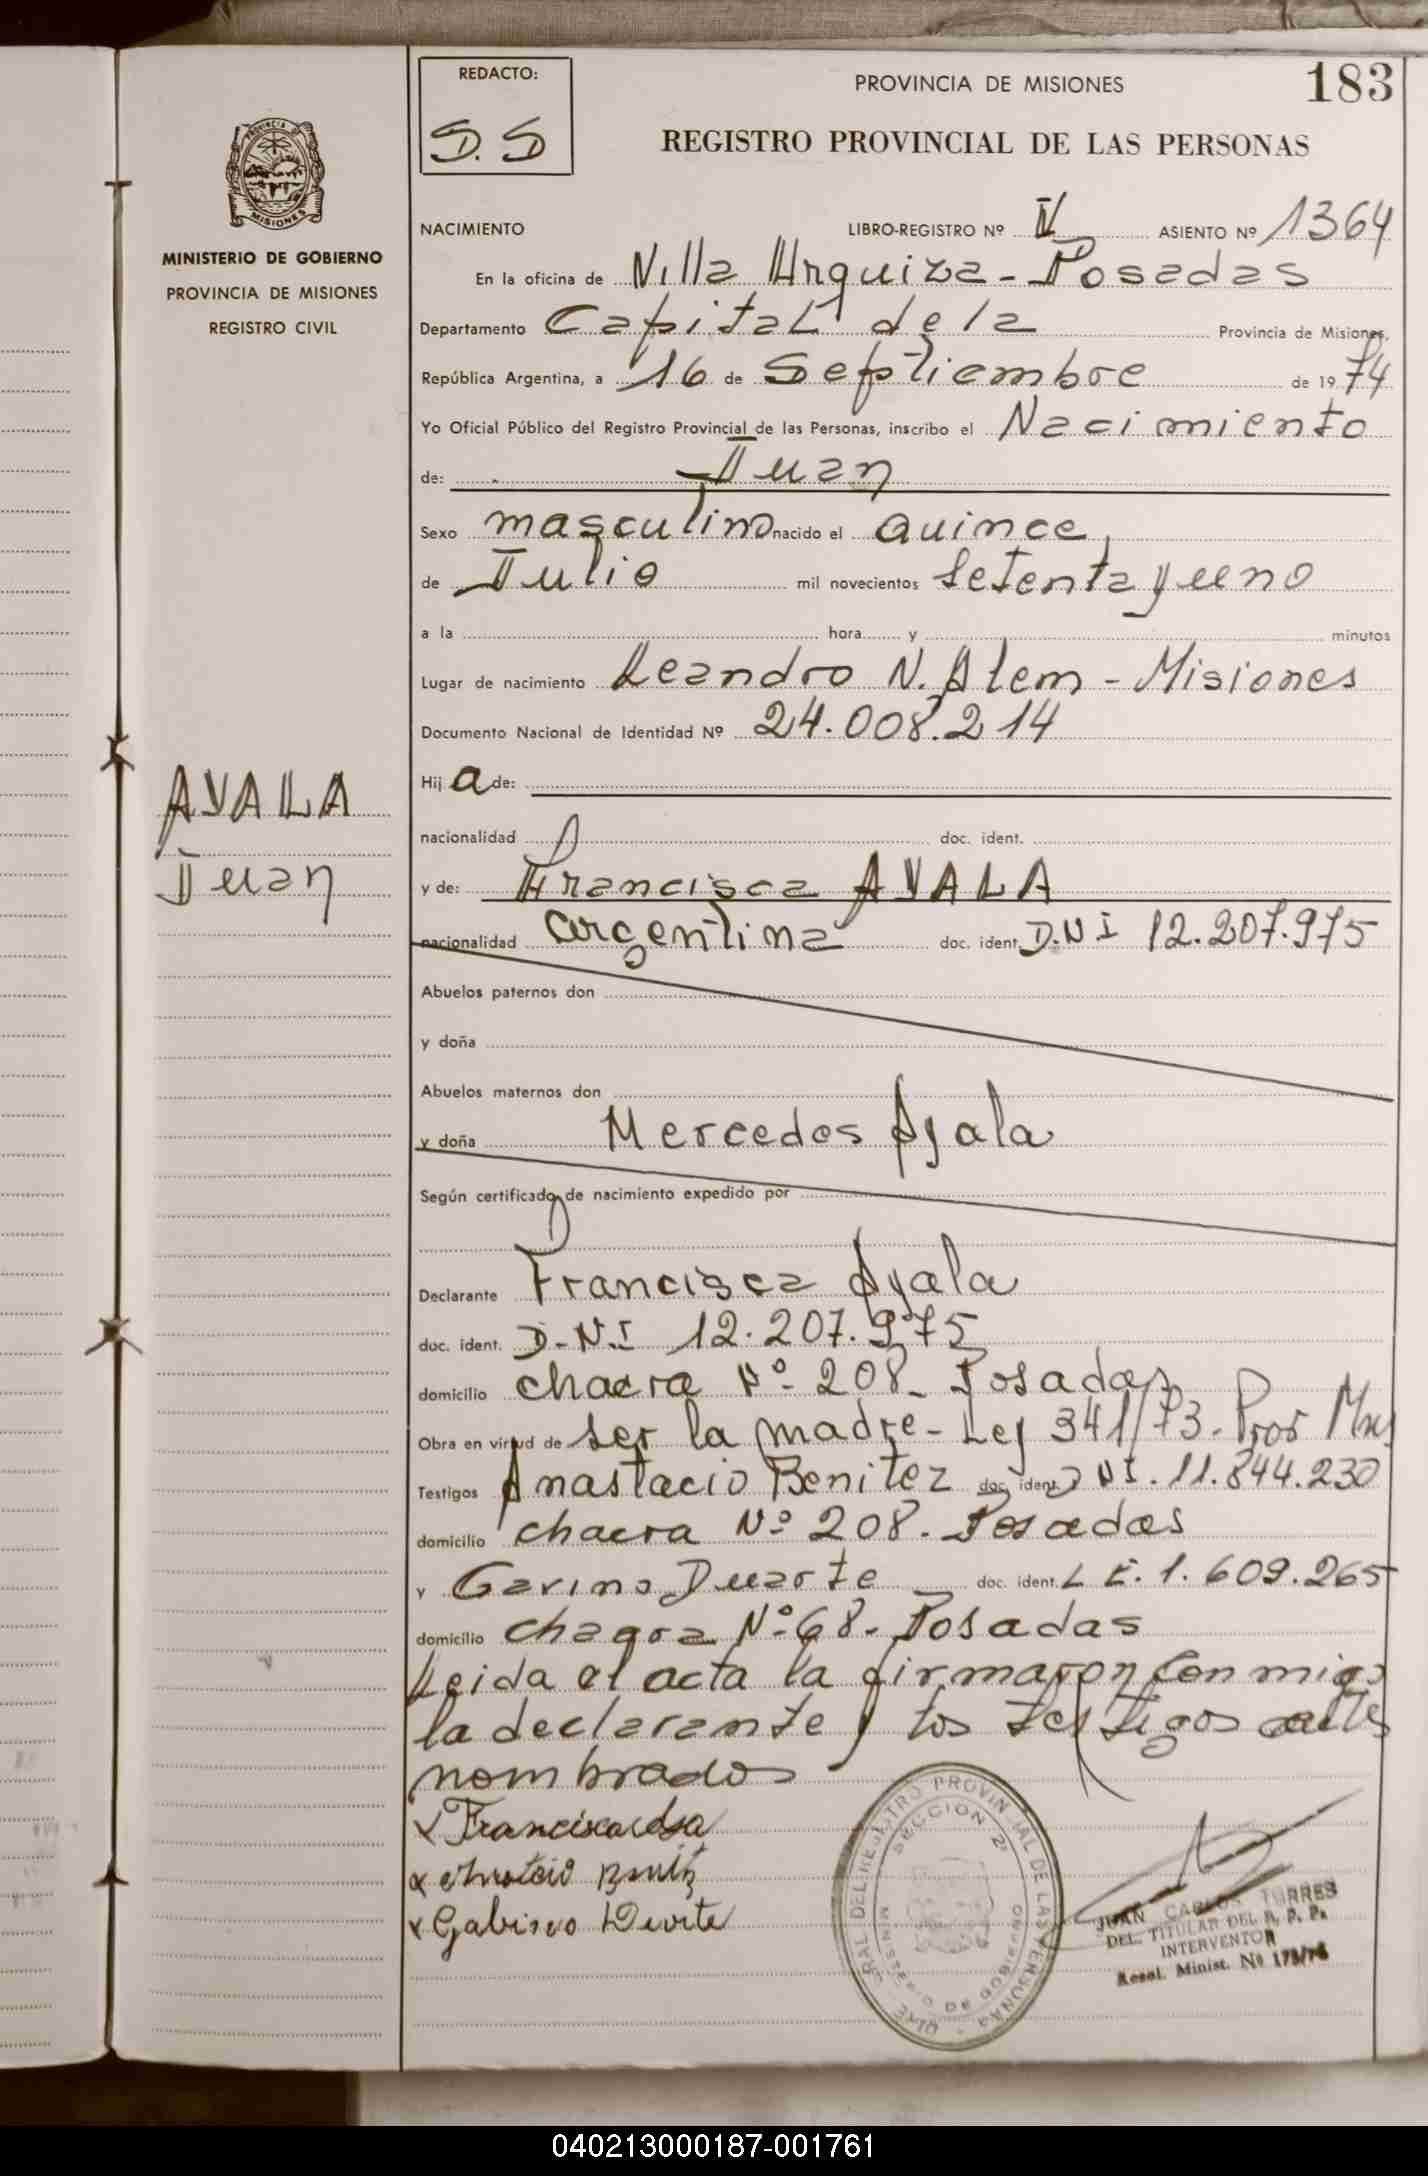 REDACTO:
S. S
PROVINCIA DE MISIONES
183
REGISTRO PROVINCIAL DE LAS PERSONAS
PROVINCIA DE
MISIONES
MINISTERIO DE GOBIERNO
PROVINCIA DE MISIONES
REGISTRO CIVIL
NACIMIENTO LIBRO-REGISTRO Nº V ASIENTO Nº 1364
En la oficina de Villa Urquiza - Posadas
Departamento Capital de la Provincia de Misiones,
República Argentina, a 16 de Septiembre de 19 74
Yo Oficial Público del Registro Provincial de las Personas, inscribo el Nacimiento
de: Juan
Sexo masculino nacido el quince
de Julio mil novecientos setenta y uno
a la hora y minutos
Lugar de nacimiento Leandro N. Alem - Misiones
Documento Nacional de Identidad Nº 24.008.214
Hij a de:
nacionalidad doc. ident.
AYALA
Juan
y de: Francisca AYALA
nacionalidad argentina doc. ident. D.N.I 12.207.975
Abuelos paternos don
y doña
Abuelos maternos don
y doña Mercedes Ayala
Según certificado de nacimiento expedido por
Declarante Francisca Ayala
doc. ident. D.N.I 12.207.975
domicilio chacra Nº 208. Posadas
Obra en virtud de ser la madre - Ley 341/73. Pror
Testigos Anastacio Benitez doc. ident. D NI. 11.844.230
domicilio chacra Nº 208. Posadas
y Gavino Duarte doc. ident. L E. 1.609.265
domicilio chacra Nº 68. Posadas
Leida el acta la firmaron conmigo
la declarante y los testigos antes
nombrados
x Francisca
x Benitz
x Gabino
SECCION 2ª
MINISTERIO DE GOBIERNO
JUAN CARLOS TORRES
DEL. TITULAR DEL R. P. P.
INTERVENTOR
Resol. Minist. Nº
040213000187-001761